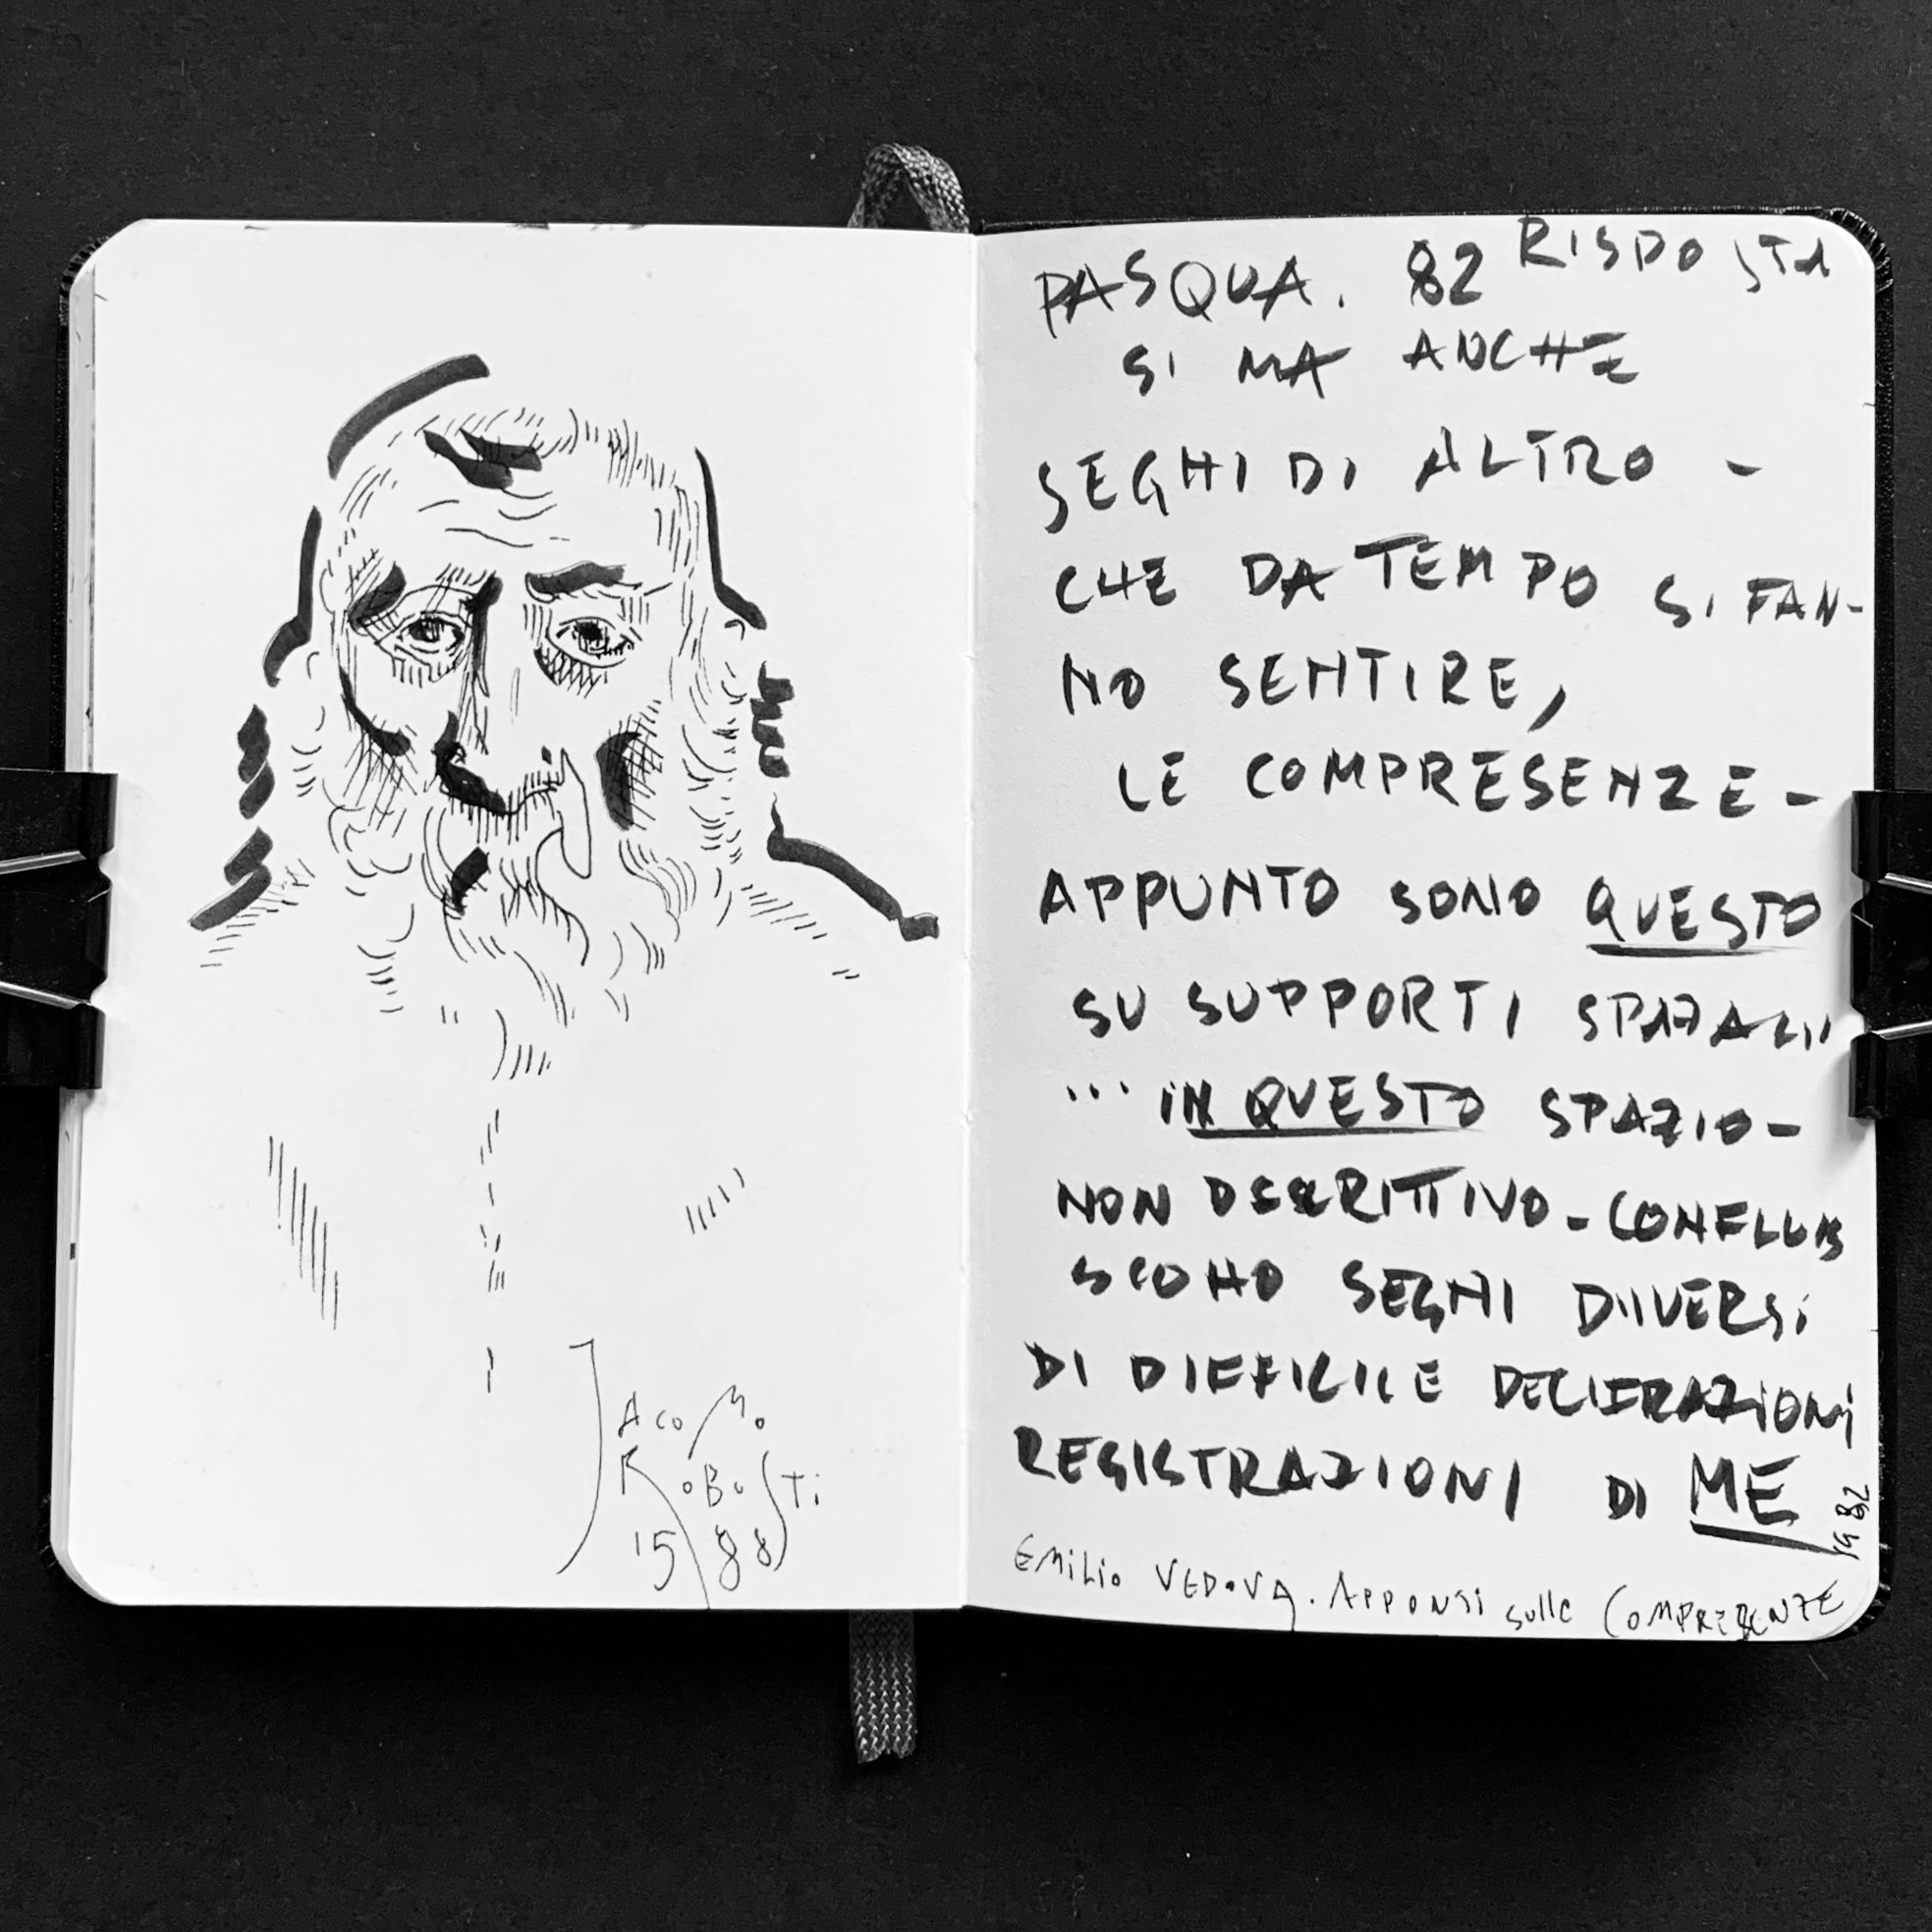 JACOMO
ROBUSTI
1588
PASQUA. 82 RISPOSTA
SI MA ANCHE
SEGHI DI ALTRO -
CHE DA TEMPO SI FAN-
NO SENTIRE,
LE COMPRESENZE -
APPUNTO SONO QUESTO
SU SUPPORTI SPAZALII
... IN QUESTO SPAZIO -
NON DESCRITTIVO - CONFLUIS
SCONO SEGNI DIIVERSI
DI DIFFICILE DECIFRAZIONI
REGISTRAZIONI DI ME
1982
EMILIO VEDOVA. APPUNTI sulle COMPRESENZE